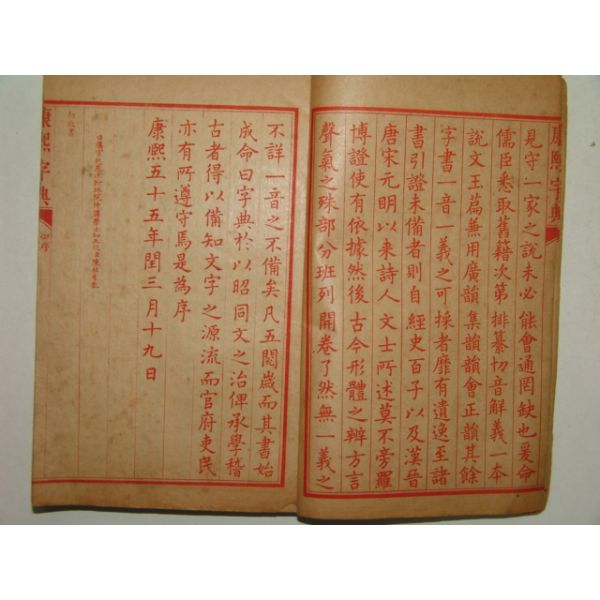 康熙字典
見守一家之說未必能會通罔缺也爰命
儒臣悉取舊籍次第排纂切音解義一本
說文玉篇兼用廣韻集韻韻會正韻其餘
字書一音一義之可採者靡有遺逸至諸
書引證未備者則自經史百子以及漢晉
唐宋元明以來詩人文士所述莫不旁羅
博證使有依據然後古今形體之辨方言
聲氣之殊部分班列開卷了然無一義之
不詳一音之不備矣凡五閱歲而其書始
成命曰字典於以昭同文之治俾承學稽
古者得以備知文字之源流而官府吏民
亦有所遵守焉是為序
康熙五十五年閏三月十九日
康熙字典 序